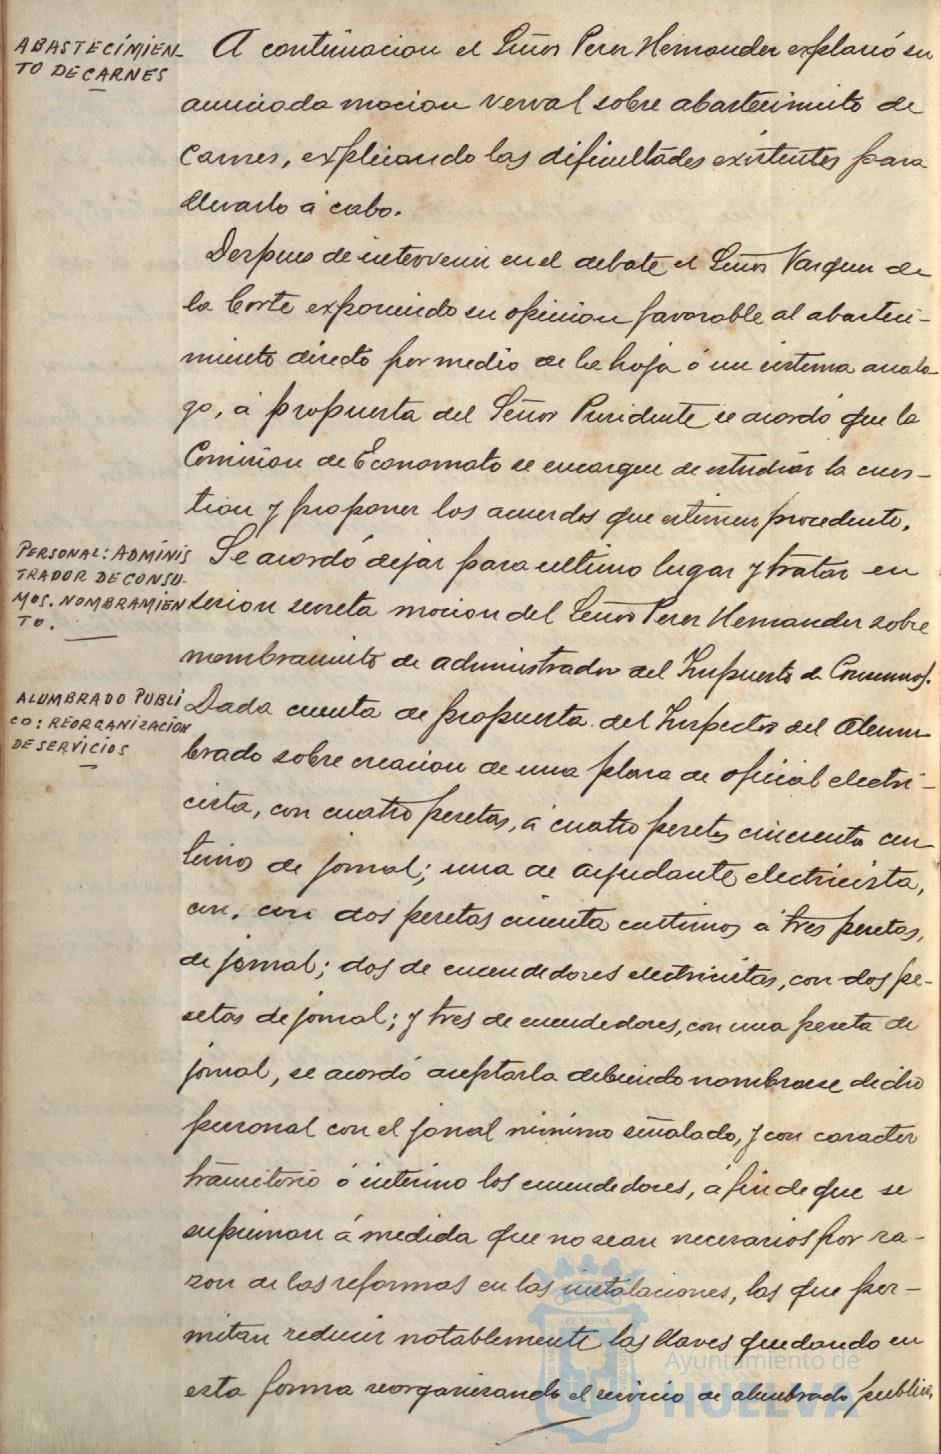 ABASTECIMIEN-
TO DE CARNES
A continuacion el Señor Perez Hernandez explanó su
anunciada mocion verval sobre abastecimiento de
Carnes, explicando las dificultades existentes para
llevarlo á cabo.
Despues de intervenir en el debate el Señor Vazquez de
la Corte exponiendo su opinion favorable al abasteci-
miento directo por medio de la hoja ó un sistema analo-
go, á propuesta del Señor Presidente se acordó que la
Comision de Economato se encargue de estudiar la cues-
tion y proponer los acuerdos que estimen procedente.
PERSONAL: ADMINIS
TRADOR DE CONSU-
MOS. NOMBRAMIEN
TO.
Se acordó dejar para ultimo lugar y tratar en
sesion secreta mocion del Señor Perez Hernandez sobre
nombramiento de administrador del Impuesto de Consumos.
ALUMBRADO PUBLI
CO: REORGANIZACIÓN
DE SERVICIOS
Dada cuenta de propuesta del Inspector del Alum-
brado sobre creacion de una plaza de oficial electri-
cista, con cuatro pesetas, á cuatro pesetas cincuenta cen
timos de jornal; una de ayudante electricista,
con. con dos pesetas cicuenta centimos á tres pesetas,
de jornal; dos de encendedores electricistas, con dos pe-
setas de jornal; y tres de encendedores, con una peseta de
jornal, se acordó aceptarla debiendo nombrarse dicho
personal con el jornal minimo señalado, y con caracter
transitorio ó interino los encendedores, á fin de que se
supriman á medida que no sean necesarios por ra-
zon de las reformas en las instalaciones, las que per-
mitan reducir notablemente las llaves quedando en
esta forma reorganizando el servicio de alumbrado publico.
Ayuntamiento de
HUELVA